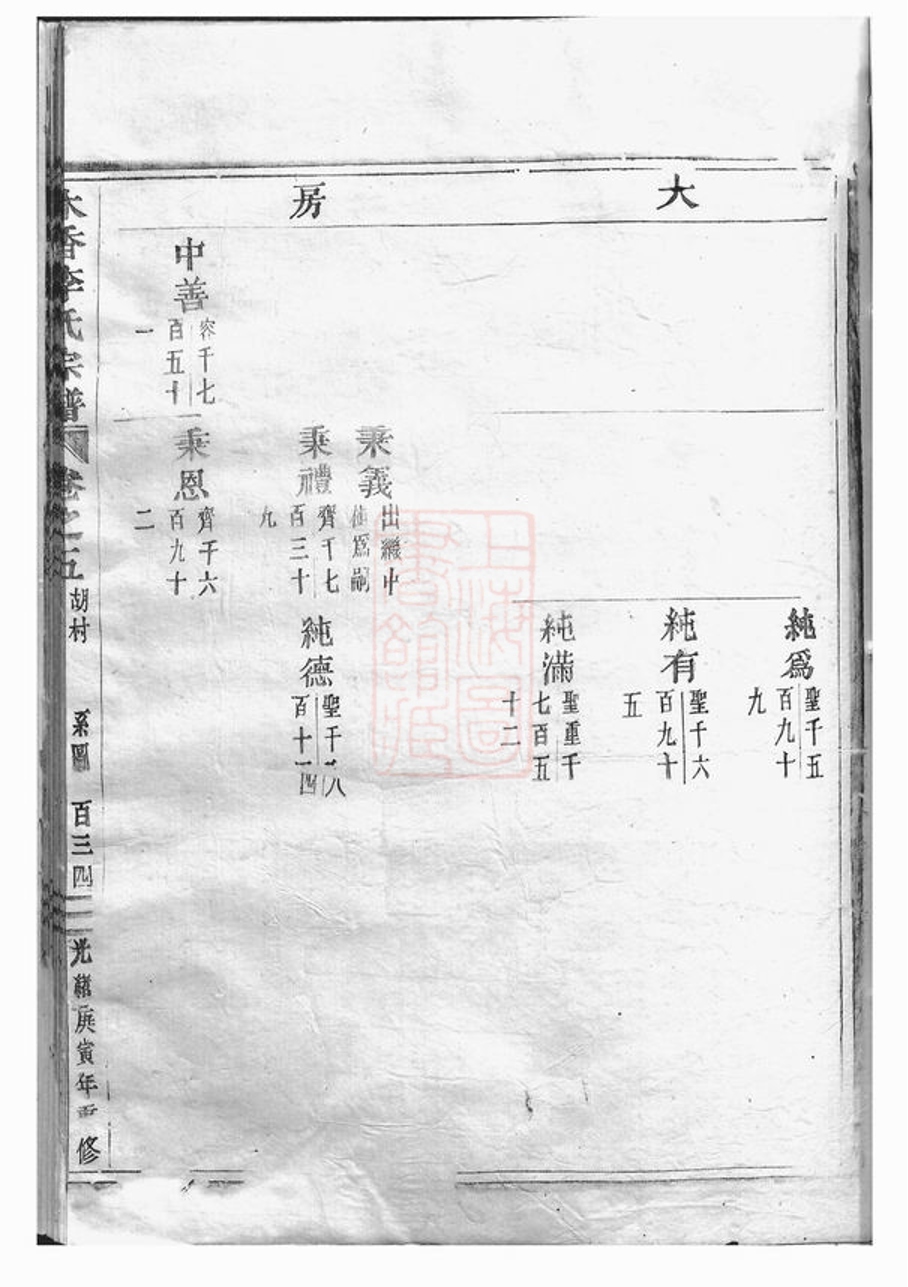 大
房
純爲
聖千五
百九十
九
純有
聖千六
百九十
五
純滿
聖重千
七百五
十二
秉義
出繼中
爲嗣
秉禮
齊千七
百三十
九
純德
聖千八
百十四
中善
容千七
百五十
一
秉恩
齊千六
百九十
二
香李氏宗譜
卷之五
胡村
系圖
百三四
光緒庚寅年重修
上海圖書館藏